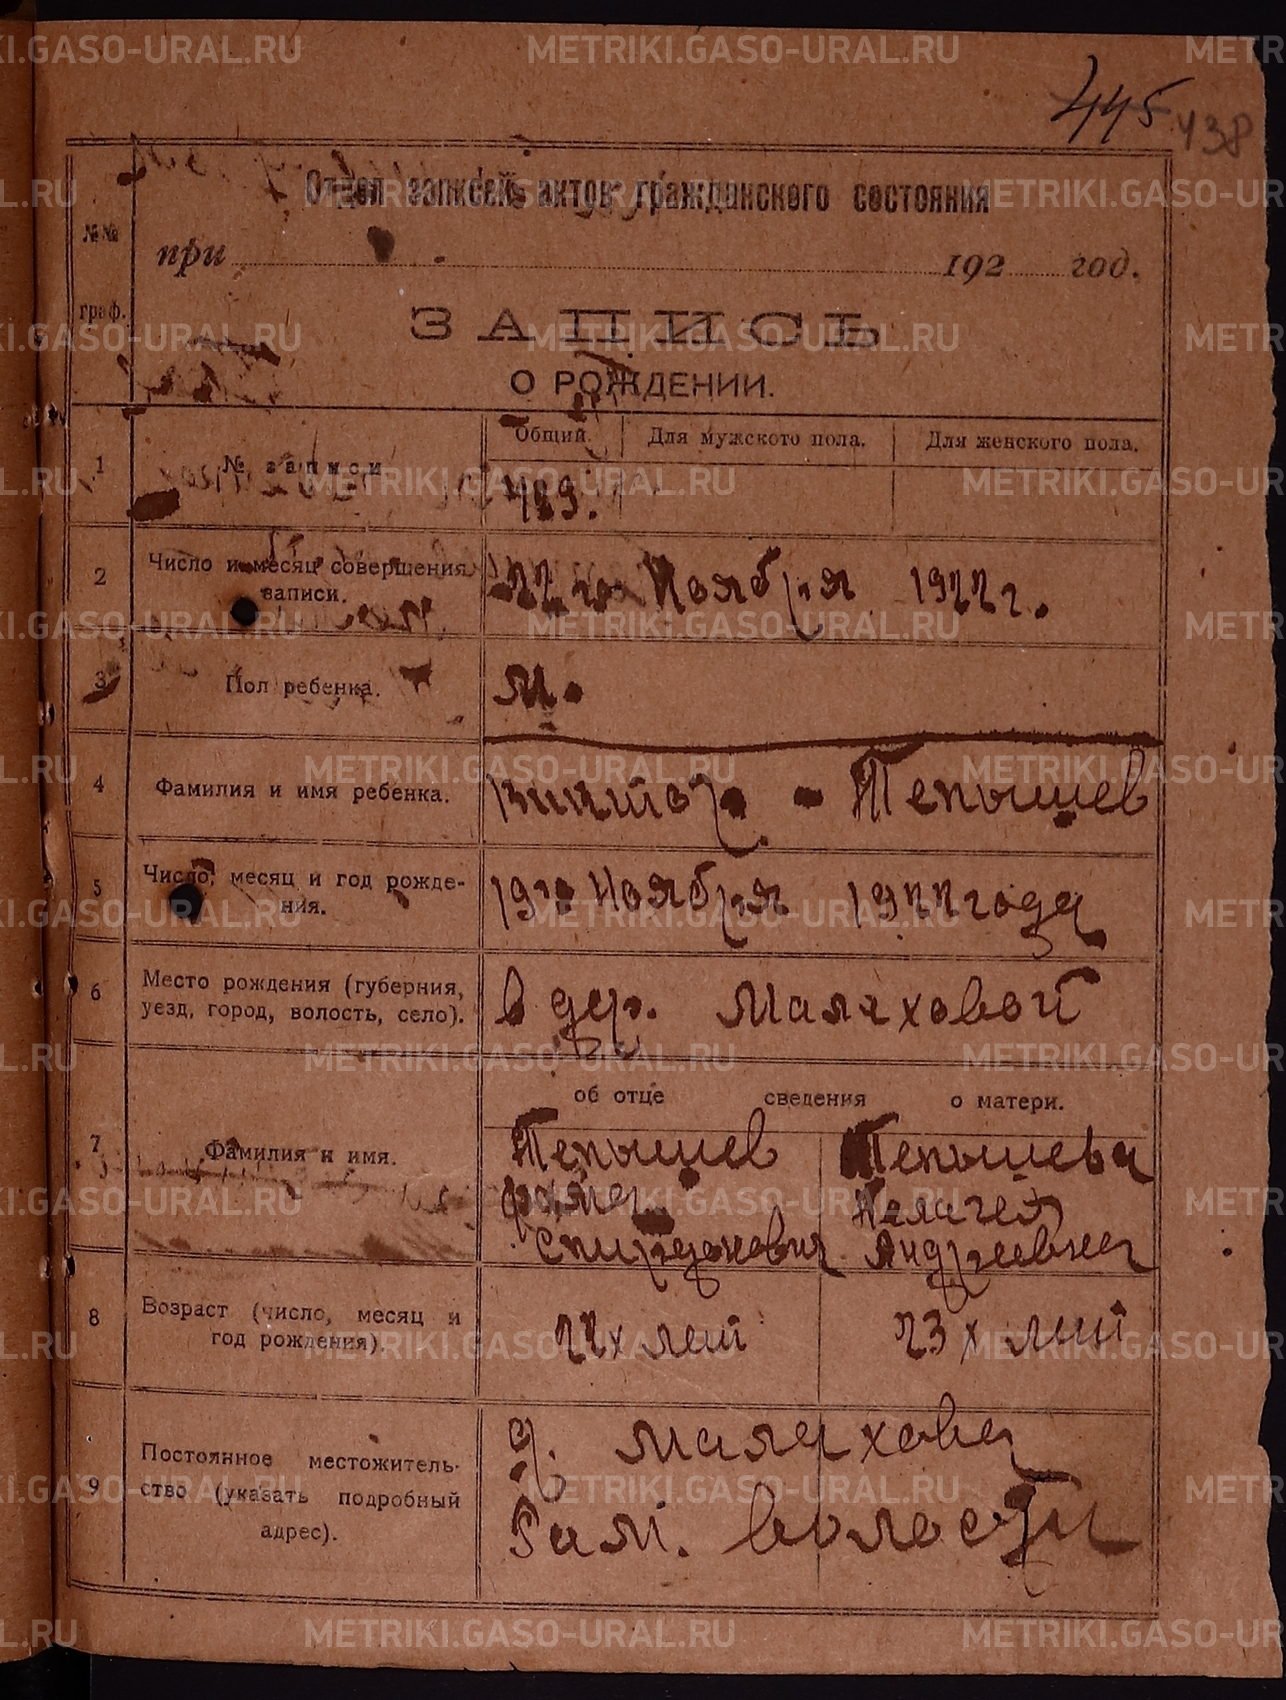 445
438
Отдел записей актов гражданского состояния
№№ граф.
при 192 год.
ЗАПИСЬ
О РОЖДЕНИИ.
Общий. Для мужского пола. Для женского пола.
1 № записи 489.
2 Число и месяц совершения записи. 22 го Ноября 1922 г.
3 Пол ребенка. М.
4 Фамилия и имя ребенка. Виктор - Тепышев
5 Число, месяц и год рожде-
ния. 19го Ноября 1922 года
6 Место рождения (губерния,
уезд, город, волость, село). в дер. Малаховой
об отце сведения о матери.
7 Фамилия и имя. Тепышев Тепышева
Пелагея
Спиридонович Андреевна
8 Возраст (число, месяц и
год рождения). 22х лет 23х лет
9 Постоянное местожитель-
ство (указать подробный
адрес). д. Малахова
волости
METRIKI.GASO-URAL.RU